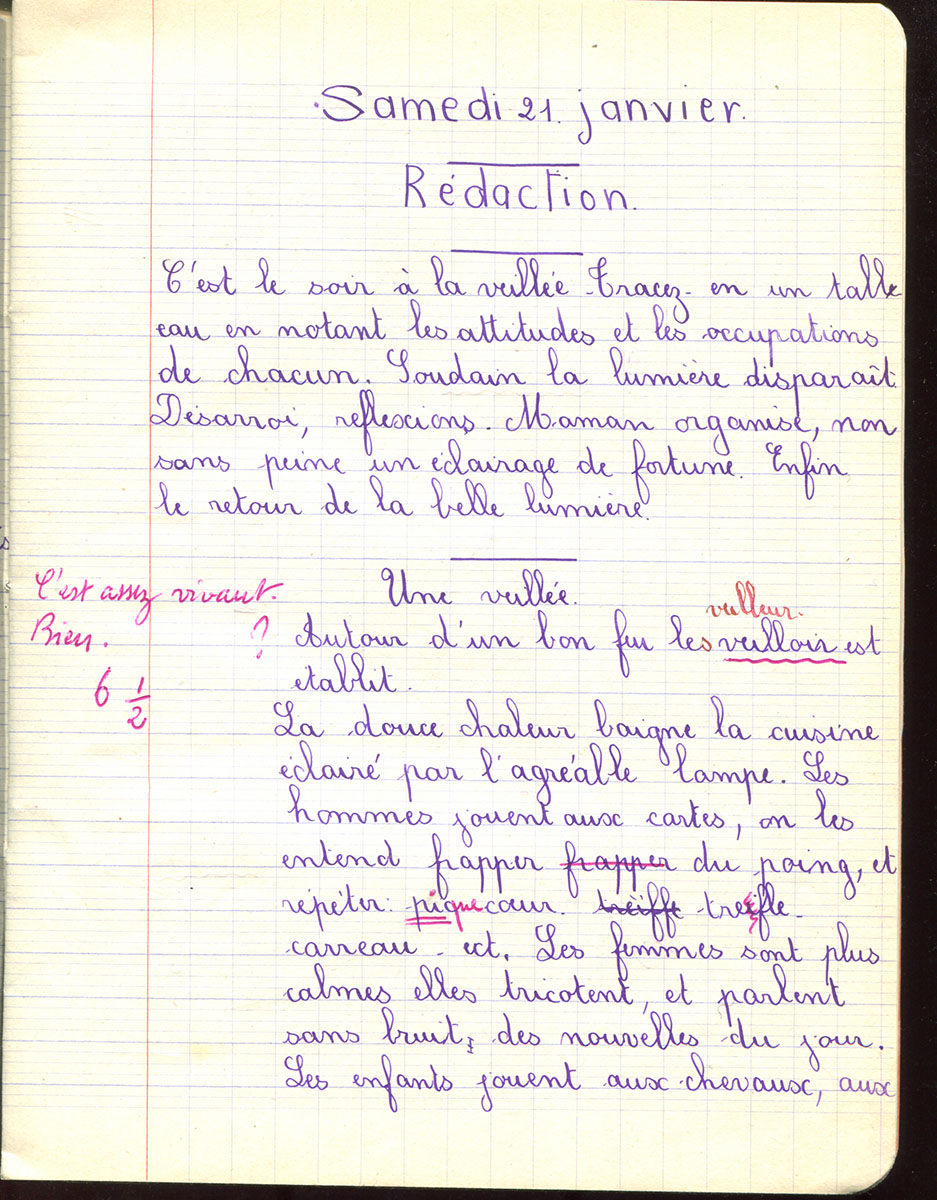 Samedi 21. janvier.
Rédaction.
C'est le soir à la veillée. Tracez-en un table
eau en notant les attitudes et les occupations
de chacun. Soudain la lumière disparaît.
Désarroi, reflexions. Maman organise, non
sans peine un éclairage de fortune. Enfin
le retour de la belle lumière.
C'est assez vivant.
Bien.
6 1/2
Une veillée.
veilleur.
? Autour d'un bon feu les veilloir est
etablit.
La douce chaleur baigne la cuisine
éclairé par l'agréable lampe. Les
hommes jouent aux cartes, on les
entend frapper frapper du poing, et
répéter: pique cœur. treiffe treifle.
carreau. ect. Les femmes sont plus
calmes elles tricotent, et parlent
sans bruit, des nouvelles du jour.
Les enfants jouent aux chevaux, aux